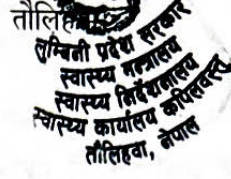 तौलिहवा
लुम्बिनी प्रदेश सरकार
स्वास्थ्य मन्त्रालय
स्वास्थ्य निर्देशनालय
स्वास्थ्य कार्यालय कपिलवस्तु
तौलिहवा, नेपाल